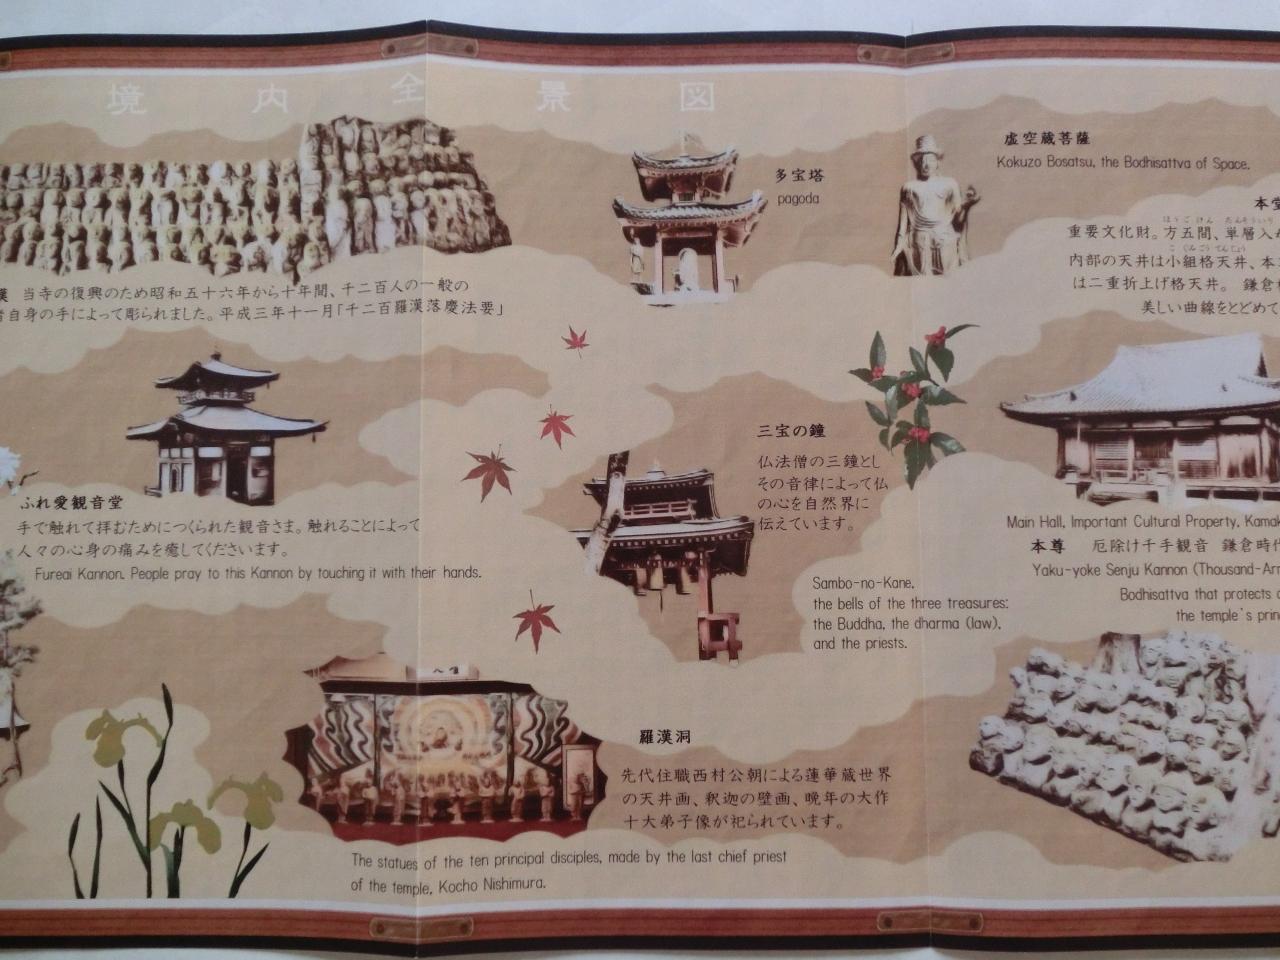 境内全景図
多宝塔
pagoda
虚空蔵菩薩
Kokuzo Bosatsu, the Bodhisattva of Space.
漢 当寺の復興のため昭和五十六年から十年間、千二百人の一般の
者自身の手によって彫られました。平成三年十一月「千二百羅漢落慶法要」
本堂
ほうごけん たんそういり
重要文化財。方五間、単層入
こ ぐみごう てんじょう
内部の天井は小組格天井、本
は二重折上げ格天井。 鎌倉
美しい曲線をとどめて
ふれ愛観音堂
手で触れて拝むためにつくられた観音さま。触れることによって
人々の心身の痛みを癒してくださいます。
Fureai Kannon. People pray to this Kannon by touching it with their hands.
三宝の鐘
仏法僧の三鐘とし
その音律によって仏
の心を自然界に
伝えています。
Sambo-no-Kane,
the bells of the three treasures:
the Buddha, the dharma (law),
and the priests.
Main Hall, Important Cultural Property, Kamak
本尊 厄除け千手観音 鎌倉時代
Yaku-yoke Senju Kannon (Thousand-Arm
Bodhisattva that protects
the temple's prin
羅漢洞
先代住職西村公朝による蓮華蔵世界
の天井画、釈迦の壁画、晩年の大作
十大弟子像が祀られています。
The statues of the ten principal disciples, made by the last chief priest
of the temple, Kocho Nishimura.